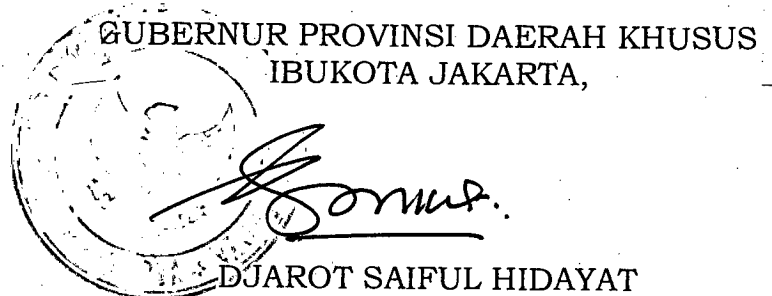 GUBERNUR PROVINSI DAERAH KHUSUS
IBUKOTA JAKARTA,
DJAROT SAIFUL HIDAYAT